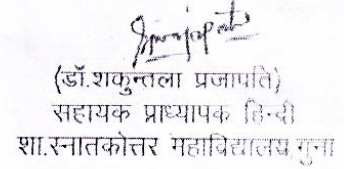 (डॉ.शकुन्तला प्रजापति)
सहायक प्राध्यापक हिन्दी
शा.स्नातकोत्तर महाविद्यालय,गुना